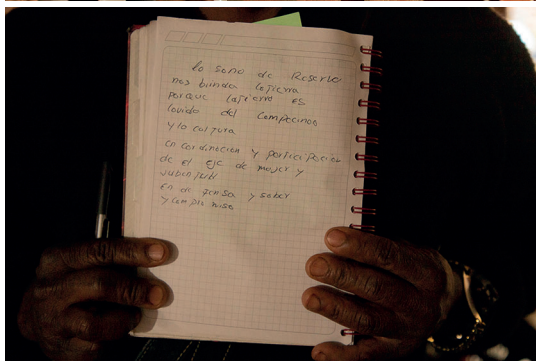 la sona de Reserva
nos brinda latierra
porque latierra es
lavida del campecino
y la cultura
en cordinacion y participacion
de el eje de mujer y
jubentud
En de fensa y saber
y compro miso